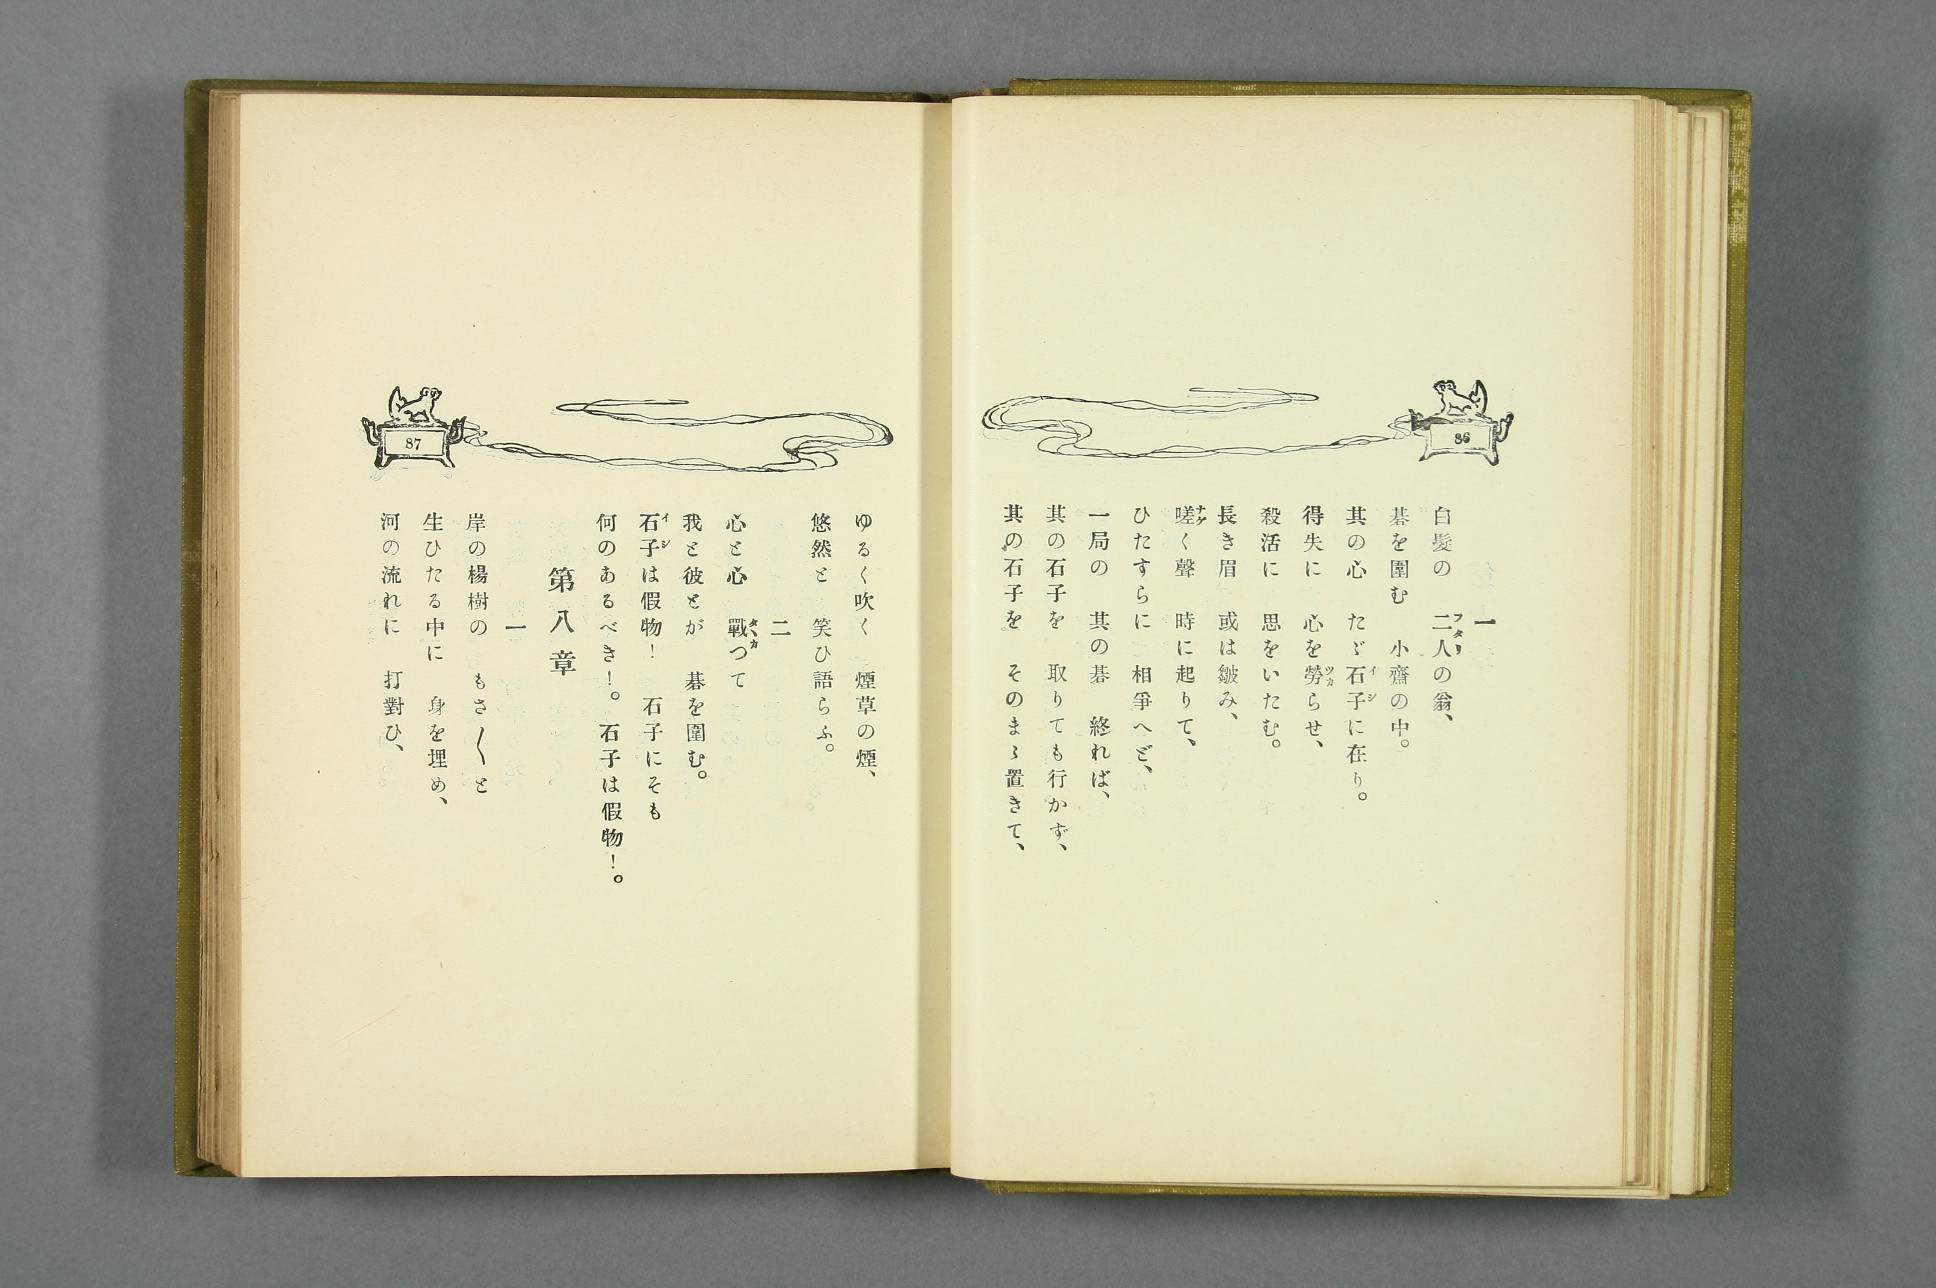 86
一
白髮の　二人の翁、
碁を圍む　小齋の中。
其の心　たゞ石子に在り。
得失に　心を勞らせ、
殺活に　思をいたむ。
長き眉　或は皺み、
嗟く聲　時に起りて、
ひたすらに　相爭へど、
一局の　其の碁　終れば、
其の石子を　取りても行かず、
其の石子を　そのまゝ置きて、
ゆるく吹く　煙草の煙、
悠然と　笑ひ語らふ。
二
心と心　戰つて
我と彼とが　碁を圍む。
石子は假物！　石子にそも
何のあるべき！。石子は假物！。
第八章
一
岸の楊樹の　もさ〳〵と
生ひたる中に　身を埋め、
河の流れに　打對ひ、
87